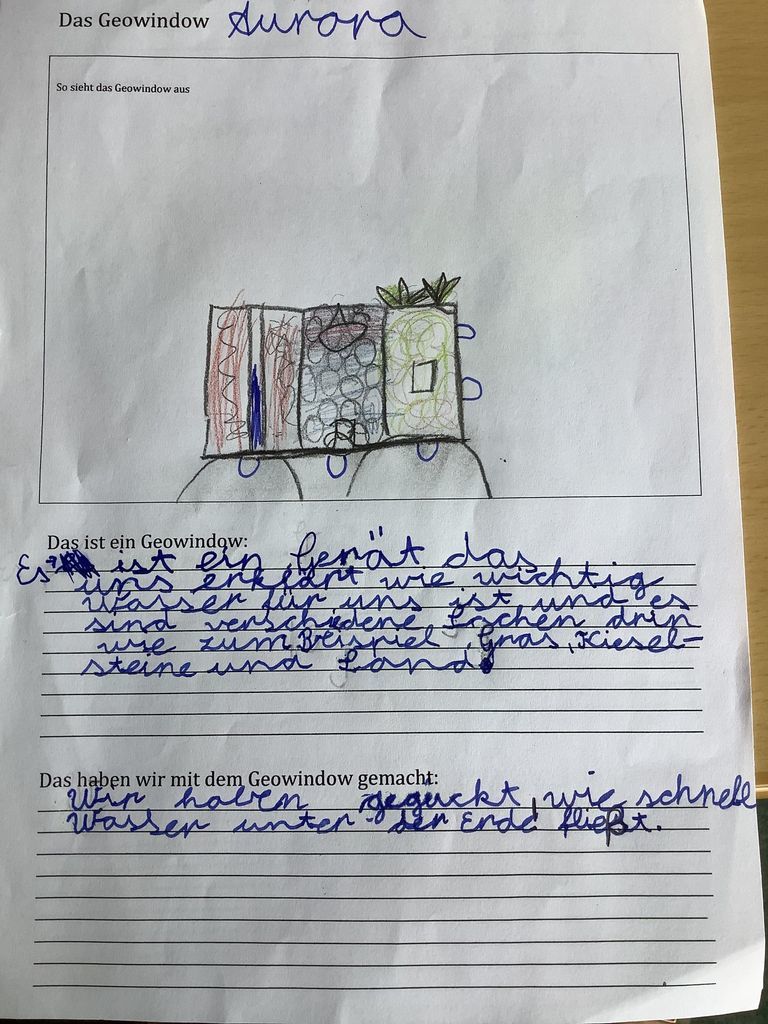 Das Geowindow Aurora
So sieht das Geowindow aus
Das ist ein Geowindow:
Es ist ein Gerät das
uns erklärt wie wichtig
Wasser für uns ist und es
sind verschiedene Sachen drin
wie zum Beispiel, Gras, Kiesel-
steine und Sand.
Das haben wir mit dem Geowindow gemacht:
Wir haben geguckt, wie schnell
Wasser unter der Erde fließt.